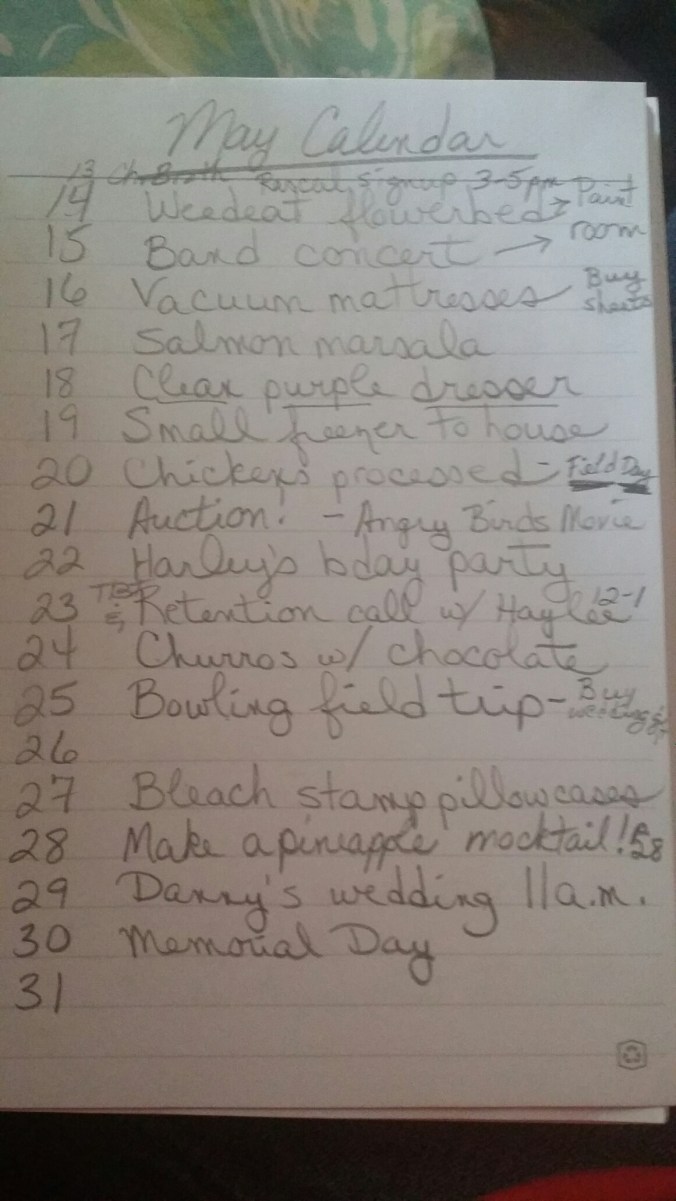 May Calendar
13 Rascal signup 3-5pm
14 Weedeat flowerbed → Paint
15 Band concert → room
16 Vacuum mattresses Buy
sheets
17 Salmon marsala
18 Clean purple dresser
19 Small freezer to house
20 Chickens processed - Field Day
21 Auction! - Angry Birds Movie
22 Harley's bday party
23 Retention call w/ Haylee 12-1
24 Churros w/ chocolate
25 Bowling field trip - Buy
wedding
26
27 Bleach stamp pillowcases
28 Make a pineapple mocktail!
29 Danny's wedding 11 a.m.
30 Memorial Day
31